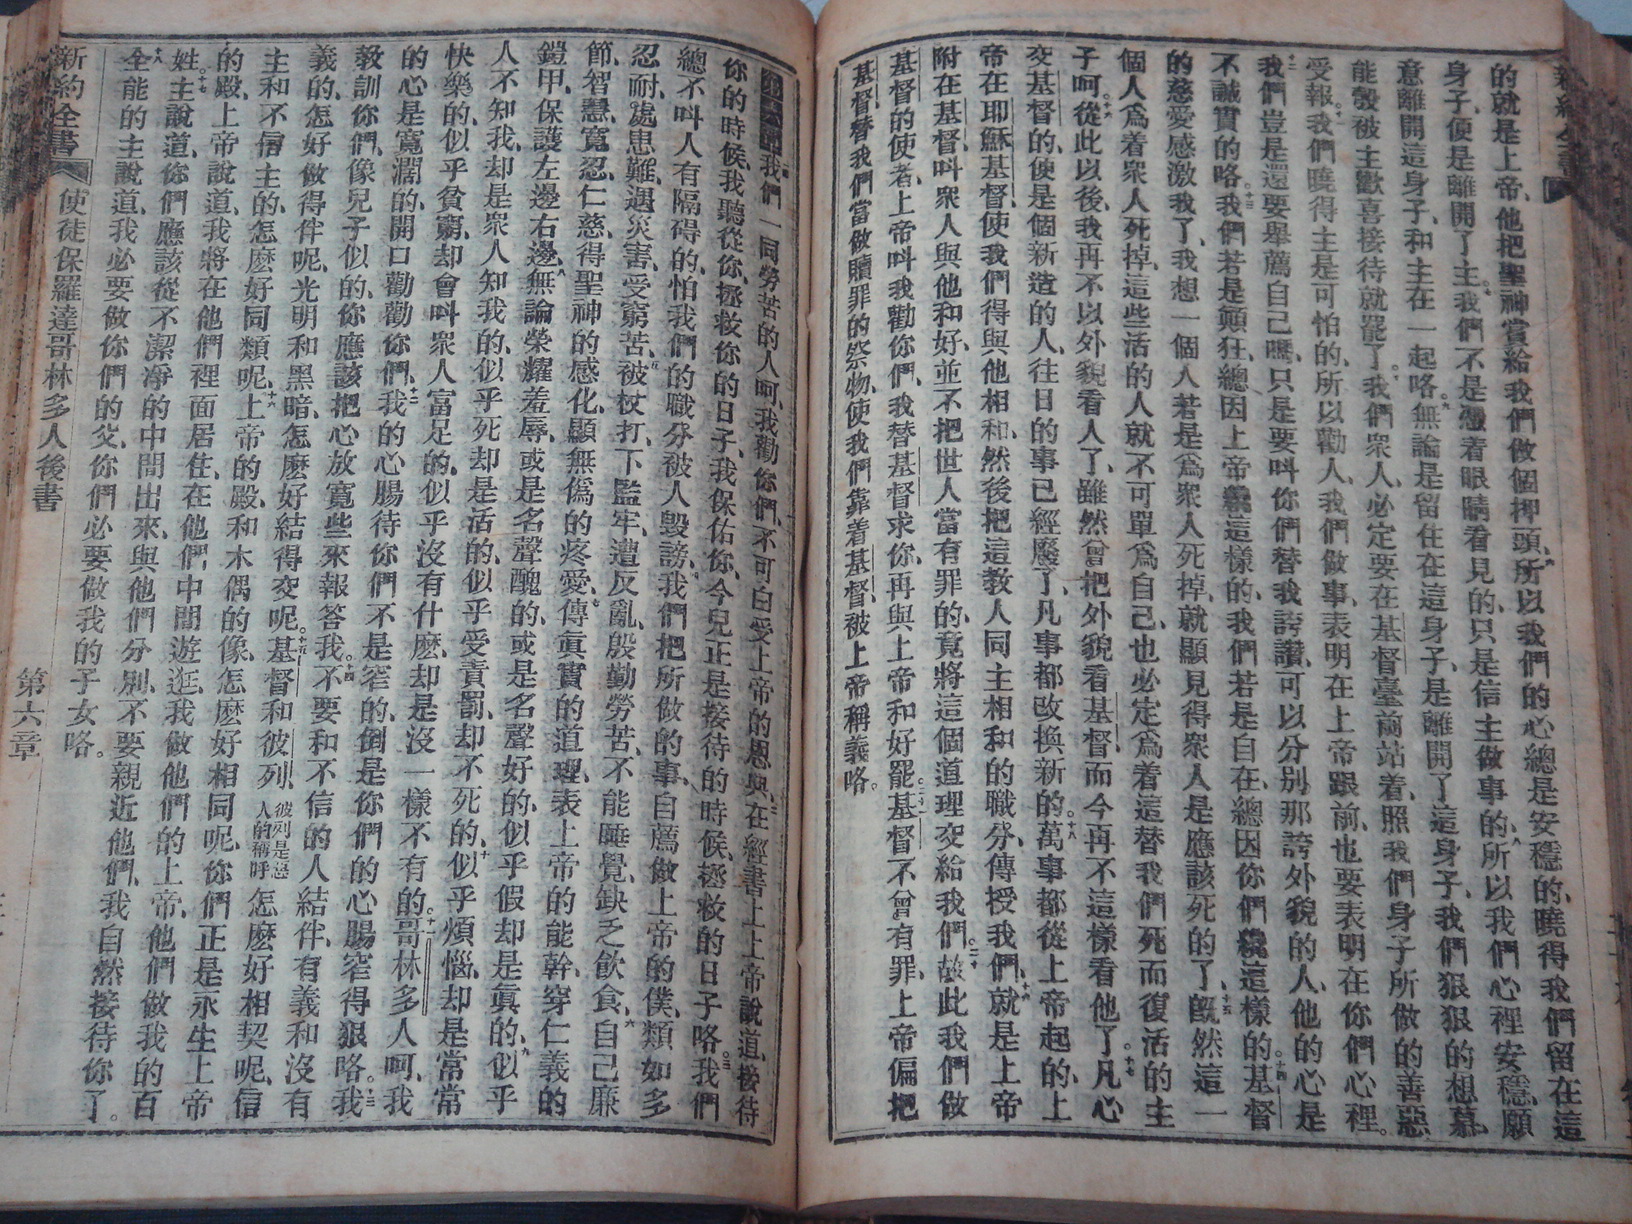 的就是上帝、他把聖神賞給我們做個押頭、六所以我們的心總是安穩的、曉得我們留在這
身子、便是離開了主、七我們不是憑着眼睛看見的、只是信主做事的、八所以我們心裡安穩、願
意離開這身子、和主在一起咯。九無論是留住在這身子、是離開了這身子、我們狠狠的想慕、
能彀被主歡喜接待就罷了。十我們衆人、必定要在基督臺前站着、照我們身子所做的善惡
受報。十一我們曉得主是可怕的、所以勸人、我們做事、表明在上帝跟前、也要表明在你們心裡。
十二我們豈是還要舉薦自己嗎、只是要叫你們替我誇讚、可以分別那誇外貌的人、他的心是
不誠實的咯。十三我們若是顛狂、總因上帝纔這樣的、我們若是自在、總因你們纔這樣的。十四基督
的慈愛感激我了、我想一個人若是爲衆人死掉、就顯見得衆人是應該死的了、十五既然這一
個人爲着衆人死掉、這些活的人就不可單爲自己、也必定爲着這替我們死而復活的主
子呵。十六從此以後、我再不以外貌看人了、雖然曾把外貌看基督、而今再不這樣看他了。十七凡心
交基督的、便是個新造的人、往日的事已經廢了、凡事都改換新的。十八萬事都從上帝起的、上
帝在耶穌基督、使我們得與他相和、然後把這教人同主相和的職分、傳授我們、十九就是上帝
附在基督、叫衆人與他和好、並不把世人當有罪的、竟將這個道理交給我們。二十故此我們做
基督的使者、上帝叫我勸你們、我替基督求你、再與上帝和好罷。二十一基督不曾有罪、上帝偏把
基督、替我們當做贖罪的祭物、使我們靠着基督、被上帝稱義咯。
第六章我們一同勞苦的人呵、我勸你們、不可白受上帝的恩典、二在經書上上帝說道、接待
你的時候、我聽從你、拯救你的日子、我保佑你、今兒正是接待的時候、拯救的日子咯。三我們
總不叫人有隔碍的、怕我們的職分被人毀謗。四我們把所做的事、自薦做上帝的僕、類如多
忍耐、處患難、遇災害、受窮苦、五被杖打、下監牢、遭反亂、殷勤勞苦、不能睡覺、缺乏飲食、六自己廉
節、智慧、寬忍、仁慈、得聖神的感化、顯無僞的疼愛、七傳眞實的道理、表上帝的能幹、穿仁義的
鎧甲、保護左邊右邊、八無論榮耀羞辱、或是名聲醜的、或是名聲好的、似乎假却是眞的、九似乎
人不知我、却是衆人知我的、似乎死却是活的、似乎受責罰、却不死的、十似乎煩惱、却是常常
快樂的、似乎貧窮、却會叫衆人富足的、似乎沒有什麽、却是沒一樣不有的。十一哥林多人呵、我
的心是寬濶的、開口勸勸你們、十二我的心腸待你們不是窄的、倒是你們的心腸窄得狠咯。十三我
教訓你們、像兒子似的、你應該把心放寬些來報答我。十四不要和不信的人結伴、有義和沒有
義的、怎好做得伴呢、光明和黑暗、怎麽好結得交呢。十五基督和彼列、彼列是惡人的稱呼怎麽好相契呢、信
主和不信主的、怎麽好同類呢、十六上帝的殿、和木偶的像、怎麽好相同呢、你們正是永生上帝
的殿、上帝說道、我將在他們裡面居住、在他們中間遊逛、我做他們的上帝、他們做我的百
姓。十七主說道、你們應該從不潔凈的中間出來、與他們分別、不要親近他們、我自然接待你了。
十八全能的主說道、我必要做你們的父、你們必要做我的子女咯。
新約全書 使徒保羅達哥林多人後書 第六章